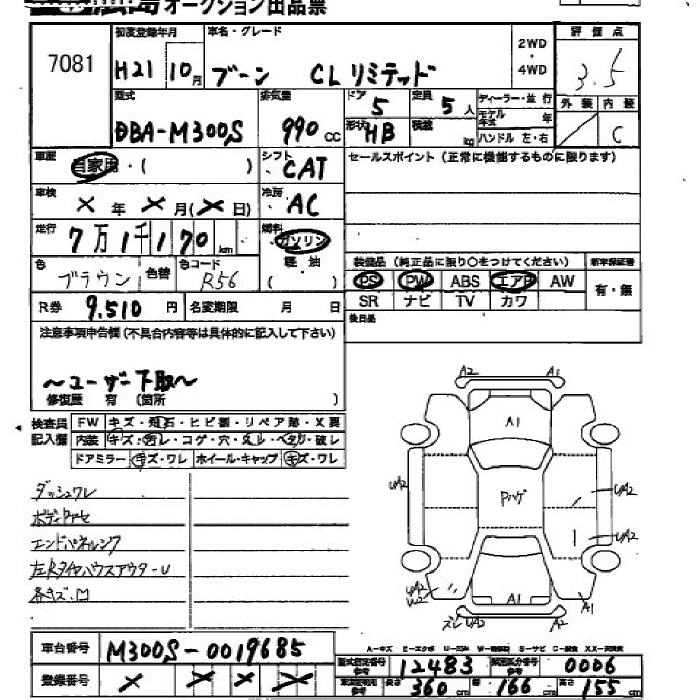 広島オークション出品票
7081
初度登録年月 車名・グレード
H21 10月 ブーン CLリミテッド
2WD・4WD
評価点
3.5
外装 内装
C
型式 排気量 ドア 定員 ディーラー・並行
DBA-M300S 990cc 5 5人
形状 HB 積載 kg
モデル年式 年
ハンドル 左・右
車歴 自家用・( )
シフト CAT
セールスポイント(正常に機能するものに限ります)
車検 × 年 × 月(× 日)
冷房 AC
走行 7万1千170km
燃料 ガソリン 軽油 ( )
色 ブラウン 色替 色コード R56
装備品(純正品に限り○をつけてください) 新車保証書
PS PW ABS エアB AW 有・無
SR ナビ TV カワ
R券 9,510円 名変期限 月 日
後日品
注意事項申告欄(不具合内容等は具体的に記入して下さい)
〜ユーザー下取〜
修復歴 有(箇所 )
検査員記入欄
FW キズ・飛石・ヒビ割・リペア跡・X要
内装 キズ・汚レ・コゲ・穴・スレ・ヘタリ・破レ
ドアミラー キズ・ワレ ホイール・キャップ キズ・ワレ
ダッシュワレ
エンドパネルシワ
左Rタイヤハウスアウター U
各キズ・凹
A2 A1
A1
Pハゲ
UA2 UA2
UA2
UA2
W2
A1 A1
ズレ UA2 A2
A=キズ
車台番号 M300S-0019685
登録番号 × × × ×
型式指定番号 参考 12483 類別区分番号 参考 0006
長さ 360cm 幅 166cm 高さ 155cm